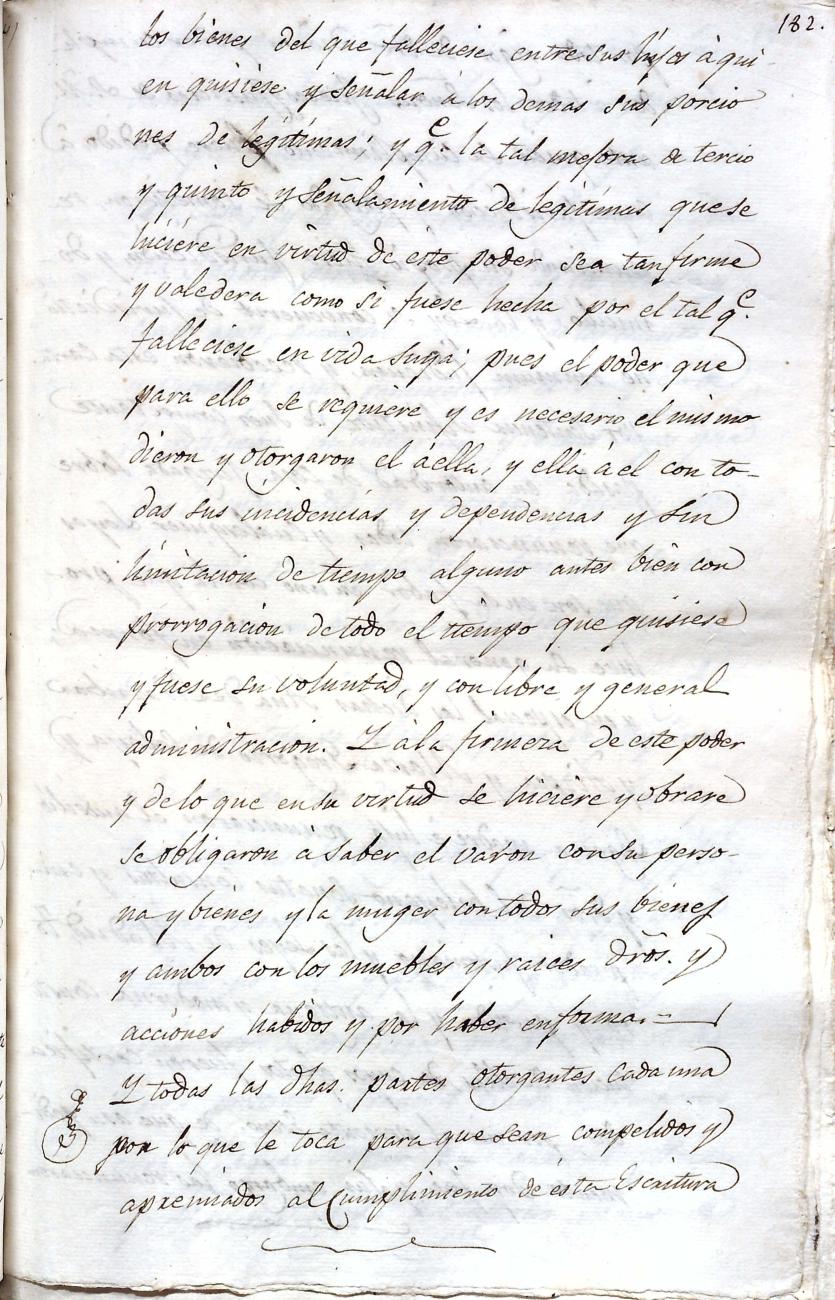 182.
los bienes del que falleciese entre sus hijos à qui-
en quisiese y señalar à los demas sus porcio
nes de legitimas; y q.e la tal mejora de tercio
y quinto y señalamiento de legitimas que se
hiciére en virtud de este poder sea tan firme
y valedera como si fuese hecha por el tal q.e
falleciese en vida suya; pues el poder que
para ello se requiére y es necesario el mismo
dieron y otorgaron el à ella, y ella à el con to-
das sus incidencias y dependencias y sin
limitacion de tiempo alguno antes bien con
prorrogacion de todo el tiempo que quisiese
y fuese su voluntad, y con libre y general
administracion. Y à la firmeza de este poder
y de lo que en su virtud se hiciére y obrare
se obligaron à saber el varon con su perso-
na y bienes y la muger con todos sus bienes
y ambos con los muebles y raices dr̃os. y
acciones habidos y por haber en forma. =
Y todas las dhas. partes otorgantes cada una
por lo que le toca para que sean compelidos y
apremiados al Cumplimiento de esta Escritura